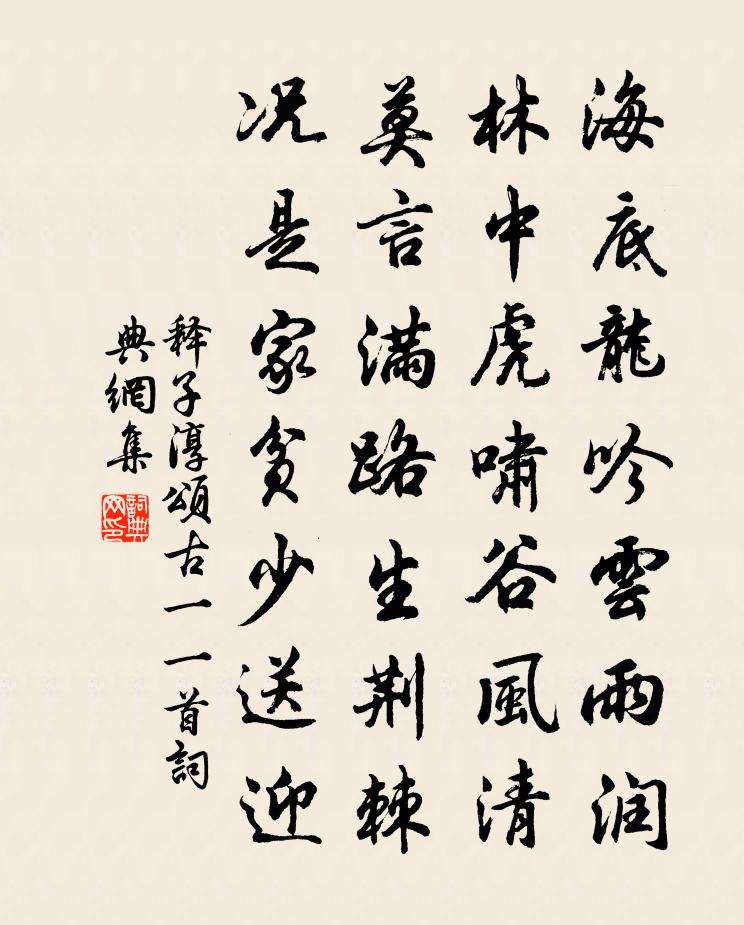 海底龍吟雲雨润
林中虎嘯谷風清
莫言满路生荆棘
况是家贫少送迎
释子淳頌古一一首詞
典網集
詞典網印